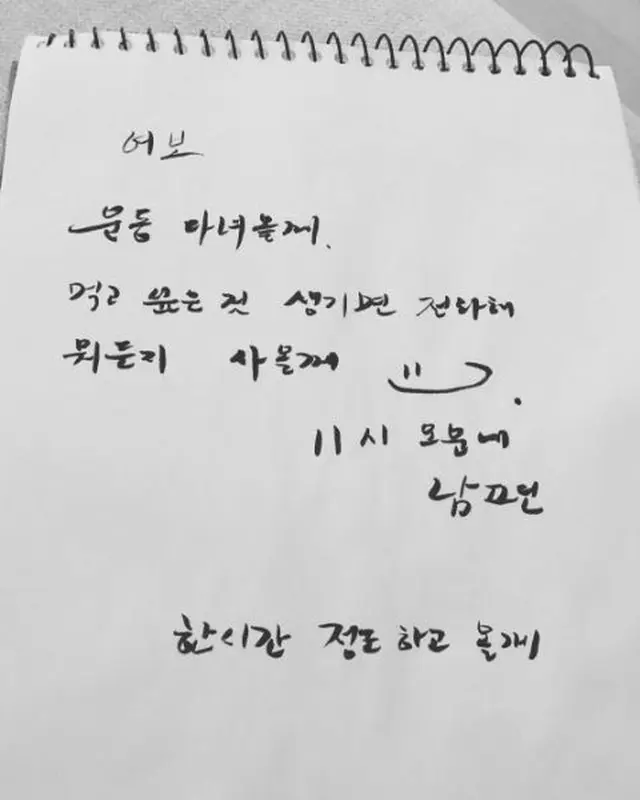 여보
운동 다녀올께.
먹고 싶은 것 생기면 전화해
뭐든지 사올께
11시 오분에
남편
한시간 정도 하고 올게